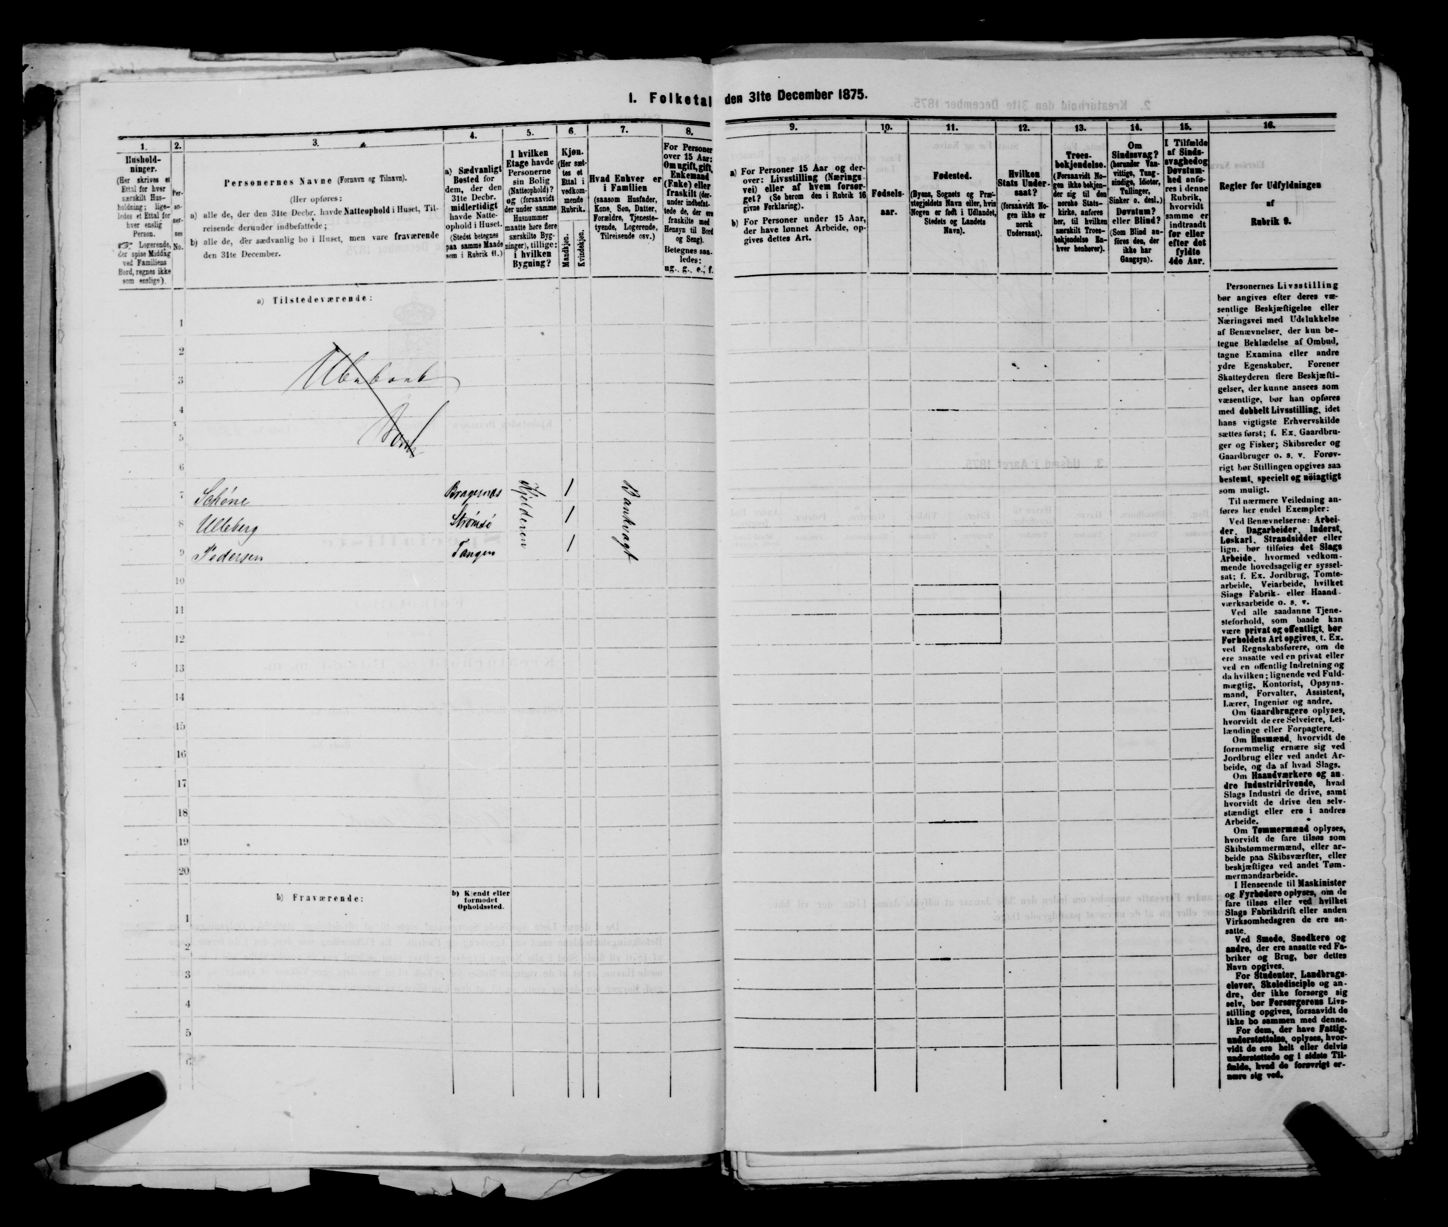 1. Folketal den 31te December 1875.
1.
2.
3.
4.
5.
6.
7.
8.
9.
10.
11.
12.
13.
14.
15.
16.
Hushold-
ninger.
(Her skrives et
Ettal for hver
særskilt Hus-
holdning; lige-
ledes et Ettal for
hver enslig
Person.
Logerende,
der spise Middag
ved Familiens
Bord, regnes ikke
som enslige).
Per-
so-
ner-
nes
No.
Personernes Navne (Fornavn og Tilnavn).
(Her opføres:
a) alle de, der den 31te Decbr. havde Natteophold i Huset, Til-
reisende derunder indbefattede;
b) alle de, der sædvanlig bo i Huset, men vare fraværende
den 31te December.
a) Sædvanligt
Bosted for
dem, der den
31te Decbr.
midlertidigt
havde Natte-
ophold i Huset.
(Stedet betegnes
paa samme Maade
som i Rubrik 11.)
I hvilken
Etage havde
Personerne
sin Bolig
(Natteophold)?
og (forsaavidt
der under samme
Husnummer
maatte høre flere
særskilte Byg-
ninger), tillige:
i hvilken
Bygning?
Kjøn.
(Her sæt-
tes et
Ettal i
vedkom-
mende
Rubrik.)
Mandkjøn.
Kvindekjøn.
Hvad Enhver er
i Familien
(saasom Husfader,
Kone, Søn, Datter,
Forældre, Tjeneste-
tyende, Logerende,
Tilreisende osv.)
For Personer
over 15 Aar:
Om ugift, gift,
Enkemand
(Enke) eller
fraskilt (der-
under indbefat-
tede de, der ere
fraskilte med
Hensyn til Bord
og Seng).
Betegnes saa-
ledes:
ug., g., e., f.
a) For Personer 15 Aar og der-
over: Livsstilling (Nærings-
vei) eller af hvem forsør-
get? (Se herom den i Rubrik 16
givne Forklaring).
b) For Personer under 15 Aar,
der have lønnet Arbeide, op-
gives dettes Art.
Fødsels-
aar.
Fødested.
(Byens, Sognets og Præ-
stegjeldets Navn eller, hvis
Nogen er født i Udlandet,
Stedets og Landets
Navn).
Hvilken
Stats Under-
saat?
(forsaavidt No-
gen ikke er
norsk
Undersaat).
Troes-
bekjendelse.
(Forsaavidt No-
gen ikke bekjen-
der sig til den
norske Stats-
kirke, anføres
her, til hvilken
særskilt Troes-
bekjendelse En-
hver henhører).
Om
Sindssvag?
(herunder Van-
vittige, Tung-
sindige, Idioter,
Tullinger,
Sinker o. desl.)
Døvstum?
eller Blind?
(Som Blind an-
føres den, der
ikke har
Gangsyn).
I Tilfælde
af Sinds-
svaghed og
Døvstum-
hed anfø-
res i denne
Rubrik,
hvorvidt
samme er
indtraadt
før eller
efter det
fyldte
4de Aar.
Regler for Udfyldningen
af
Rubrik 9.
a) Tilstedeværende:
1
2
3
4
5
6
7 Schøne Bragernæs Kjelderen 1 Bankvagt
8 Ulleberg Strømsø 1
9 Pedersen Tangen 1
10
11
12
13
14
15
16
17
18
19
20
b) Fraværende:
b) Kjendt eller
formodet
Opholdssted.
1
2
3
4
5
6
Personernes Livsstilling
bør angives efter deres væ-
sentlige Beskjæftigelse eller
Næringsvei med Udelukkelse
af Benævnelser, der kun be-
tegne Beklædelse af Ombud,
tagne Examina eller andre
ydre Egenskaber. Forener
Skatteyderen flere Beskjæfti-
gelser, der kunne ansees som
væsentlige, bør han opføres
med dobbelt Livsstilling, idet
hans vigtigste Erhvervskilde
sættes først; f. Ex. Gaardbru-
ger og Fisker; Skibsreder og
Gaardbruger o. s. v. Forøv-
rigt bør Stillingen opgives saa
bestemt, specielt og nøiagtigt
som muligt.
Til nærmere Veiledning an-
føres her endel Exempler:
Ved Benævnelserne: Arbei-
der, Dagarbeider, Inderst,
Løskarl, Strandsidder eller
lign. bør tilføies det Slags
Arbeide, hvormed vedkom-
mende hovedsagelig er syssel-
sat; f. Ex. Jordbrug, Tomte-
arbeide, Veiarbeide, hvilket
Slags Fabrik- eller Haand-
værksarbeide o. s. v.
Ved alle saadanne Tjene-
steforhold, som baade kan
være privat og offentligt, bør
Forholdets Art opgives, f. Ex.
ved Regnskabsførere, om de
ere ansatte ved en privat eller
ved en offentlig Indretning og
da hvilken; lignende ved Fuld-
mægtig, Kontorist, Opsyns-
mand, Forvalter, Assistent,
Lærer, Ingeniør og andre.
Om Gaardbrugere oplyses,
hvorvidt de ere Selveiere, Lei-
lændinge eller Forpagtere.
Om Husmænd, hvorvidt de
fornemmelig ernære sig ved
Jordbrug eller ved andet Ar-
beide, og da af hvad Slags.
Om Haandværkere og an-
dre Industridrivende, hvad
Slags Industri de drive, samt
hvorvidt de drive den selv-
stændigt eller ere i andres
Arbeide.
Om Tømmermænd oplyses,
hvorvidt de fare tilsøs som
Skibstømmermænd, eller ar-
beide paa Skibsværfter, eller
beskjæftiges ved andet Tøm-
mermandsarbeide.
I Henseende til Maskinister
og Fyrbødere oplyses, om de
fare tilsøs eller ved hvilket
Slags Fabrikdrift eller anden
Virksomhedsgren de ere an-
satte.
Ved Smede, Snedkere og
andre, der ere ansatte ved Fa-
briker og Brug, bør dettes
Navn opgives.
For Studenter, Landbrugs-
elever, Skoledisciple og an-
dre, der ikke forsørge sig
selv, bør Forsørgerens Livs-
stilling opgives, forsaavidt de
ikke bo sammen med denne.
For dem, der have Fattig-
understøttelse, oplyses, hvor-
vidt de ere helt eller delvis
understøttede og i sidste Til-
fælde, hvad de forøvrigt er-
nære sig ved.